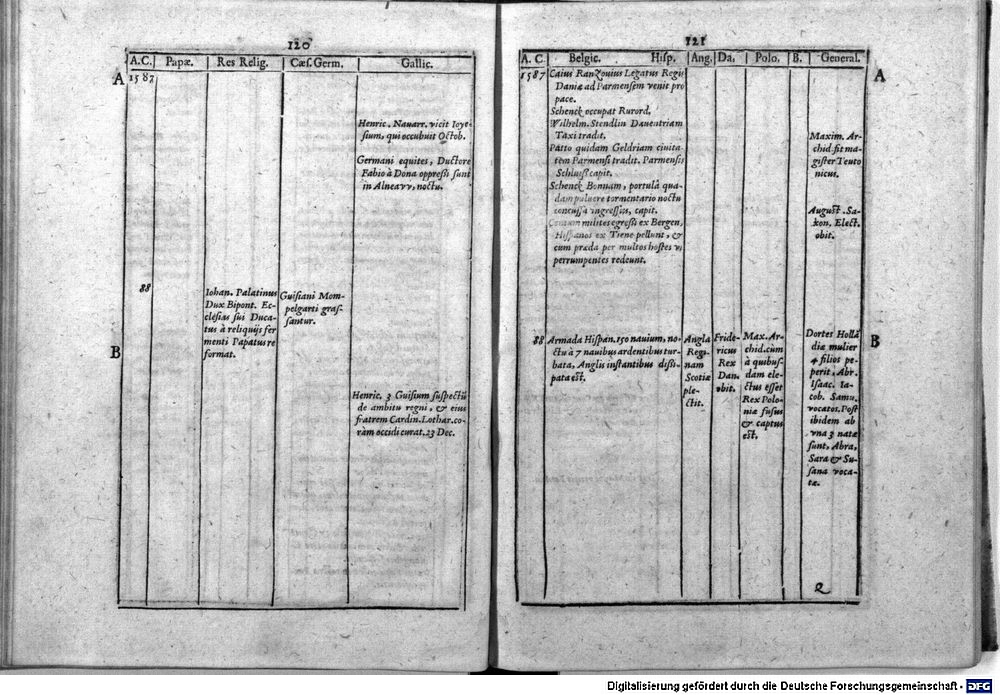 120
A.C. Papæ. Res Relig. Cæs. Germ. Gallic.
A
1587
Henric. Nauarr. vicit Ioye-
sium, qui occubuit Octob.
Germani equites, Ductore
Fabio à Dona oppreßi sunt
in Alneavv, noctu.
88
Iohan. Palatinus
Dux Bipont. Ec-
clesias sui Duca-
tus à reliquijs fer
menti Papatus re
format.
Guisiani Mom-
pelgarti gras-
santur.
B
Henric. 3 Guisium suspectū
de ambitu regni, & eius
fratrem Cardin. Lothar. co-
ràm occidi curat. 23 Dec.
121
A. C. Belgic. Hisp. Ang. Da. Polo. B. General.
A
1587
Caius Ranzouius Legatus Regis
Daniæ ad Parmensem venit pro
pace.
Schenck occupat Rurord.
Wilhelm. Stendlin Dauentriam
Taxi tradit.
Patto quidam Geldriam ciuita-
tem Parmensi tradit. Parmensis
Schlusß capit.
Schenck Bonnam, portulâ qua-
dam puluere tormentario noctu
concussâ ingressus, capit.
Centum milites egreßi ex Bergen,
Hispanos ex Tiene pellunt, &
cum præda per multos hostes vi
perrumpentes redeunt.
Maxim. Ar-
chid. fit ma-
gister Teuto
nicus.
August. Sa-
xon. Elect.
obit.
88
Armada Hispan. 150 nauium, no-
ctu à 7 nauibus ardentibus tur-
bata, Anglis instantibus dißi-
pata est.
Angla
Regi-
nam
Scotiæ
ple-
ctit.
Fride-
ricus
Rex
Dan.
obit.
Max. Ar-
chid. cùm
à quibus-
dam ele-
ctus esset
Rex Polo-
niæ fusus
& captus
est.
B
Dortes Hollā
diæ mulier
4 filios pe-
perit, Abr.
Isaac. Ia-
cob. Samu.
vocatos. Post
ibidem ab
vna 3 natæ
sunt, Abra,
Sara & Su-
sana voca-
tæ.
Q
Digitalisierung gefördert durch die Deutsche Forschungsgemeinschaft - DFG